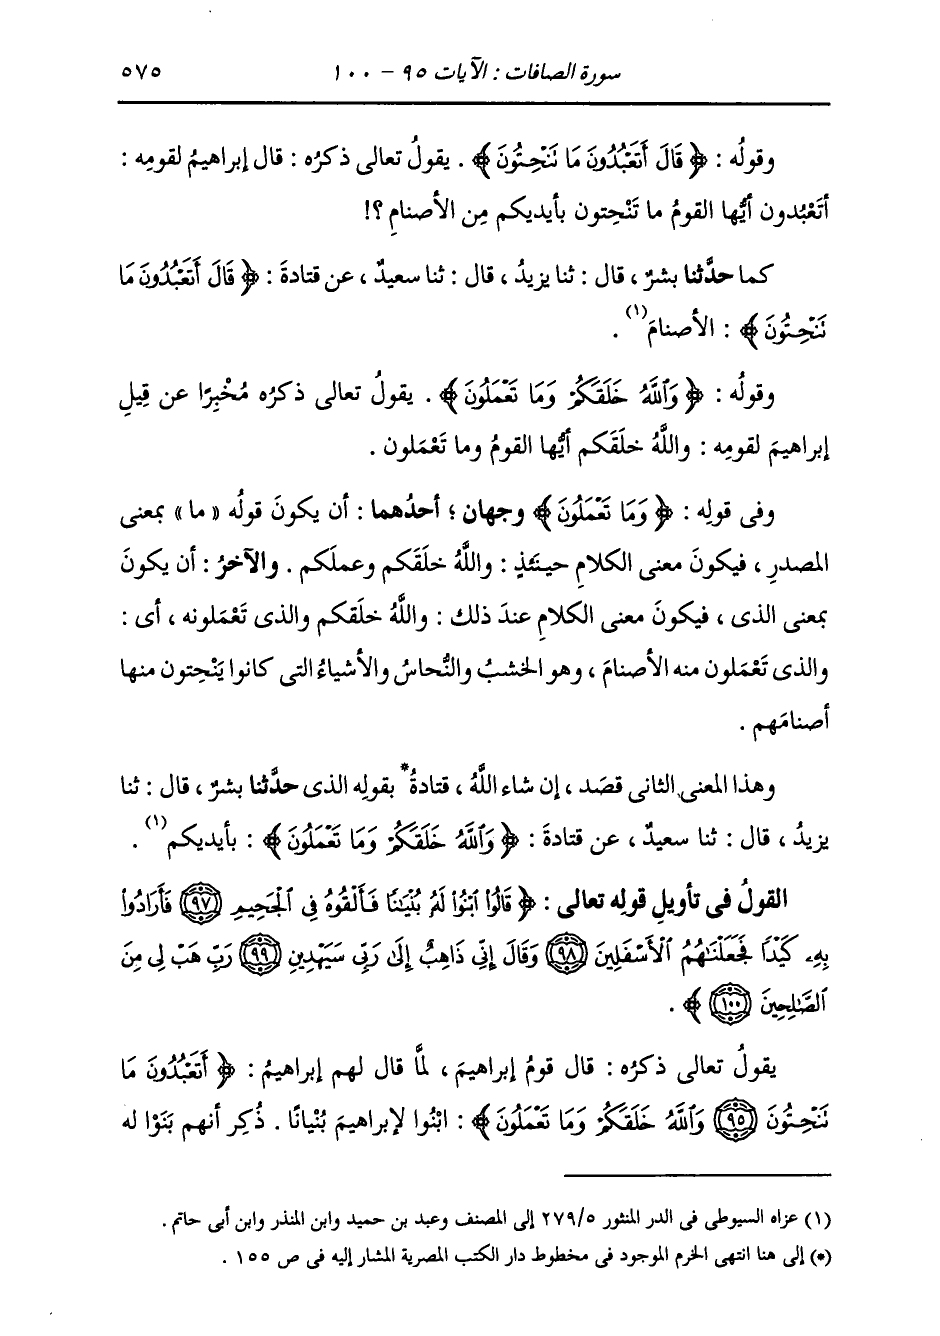 سورة الصافات : الآيات ٩٥ - ١٠٠ ٥٧٥
وقولُه : ﴿ قَالَ أَتَعْبُدُونَ مَا نَنْحِتُونَ ﴾ . يقولُ تعالى ذكرُه : قال إبراهيمُ لقومِه :
أتَعْبُدون أيُّها القومُ ما تَنْحِتون بأيديكم مِن الأصنامِ ؟!
كما حدَّثنا بشرٌ ، قال : ثنا يزيدُ ، قال : ثنا سعيدٌ ، عن قتادةَ : ﴿ قَالَ أَتَعْبُدُونَ مَا
نَنْحِتُونَ ﴾ : الأصنامَ (١) .
وقولُه : ﴿ وَاللَّهُ خَلَقَكُمْ وَمَا تَعْمَلُونَ ﴾ . يقولُ تعالى ذكرُه مُخْبِرًا عن قِيلِ
إبراهيمَ لقومِه : واللَّهُ خلَقَكم أيُّها القومُ وما تَعْمَلون .
وفى قولِه : ﴿ وَمَا تَعْمَلُونَ ﴾ وجهان ؛ أحدُهما : أن يكونَ قولُه « ما » بمعنى
المصدرِ ، فيكونَ معنى الكلامِ حينَئذٍ : واللَّهُ خلَقَكم وعملَكم . والآخرُ : أن يكونَ
بمعنى الذى ، فيكونَ معنى الكلامِ عندَ ذلك : واللَّهُ خلَقكم والذى تَعْمَلونه ، أى :
والذى تَعْمَلون منه الأصنامَ ، وهو الخشبُ والنُّحاسُ والأشياءُ التى كانوا يَنْحِتون منها
أصنامَهم .
وهذا المعنى الثانى قصَد ، إن شاء اللَّهُ ، قتادةُ* بقولِه الذى حدَّثنا بشرٌ ، قال : ثنا
يزيدُ ، قال : ثنا سعيدٌ ، عن قتادةَ : ﴿ وَاللَّهُ خَلَقَكُمْ وَمَا تَعْمَلُونَ ﴾ : بأيديكم (١) .
القولُ فى تأويلِ قولِه تعالى : ﴿ قَالُوا ابْنُوا لَهُ بُنْيَانًا فَأَلْقُوهُ فِي الْجَحِيمِ ٩٧ فَأَرَادُوا
بِهِ كَيْدًا فَجَعَلْنَاهُمُ الْأَسْفَلِينَ ٩٨ وَقَالَ إِنِّي ذَاهِبٌ إِلَى رَبِّي سَيَهْدِينِ ٩٩ رَبِّ هَبْ لِي مِنَ
الصَّالِحِينَ ١٠٠ ﴾ .
يقولُ تعالى ذكرُه : قال قومُ إبراهيمَ ، لمَّا قال لهم إبراهيمُ : ﴿ أَتَعْبُدُونَ مَا
نَنْحِتُونَ ٩٥ وَاللَّهُ خَلَقَكُمْ وَمَا تَعْمَلُونَ ﴾ : ابْنُوا لإبراهيمَ بُنْيانًا . ذُكِر أنهم بَنَوْا له
(١) عزاه السيوطى فى الدر المنثور ٢٧٩/٥ إلى المصنف وعبد بن حميد وابن المنذر وابن أبى حاتم .
(*) إلى هنا انتهى الخرم الموجود فى مخطوط دار الكتب المصرية المشار إليه فى ص ١٥٥ .